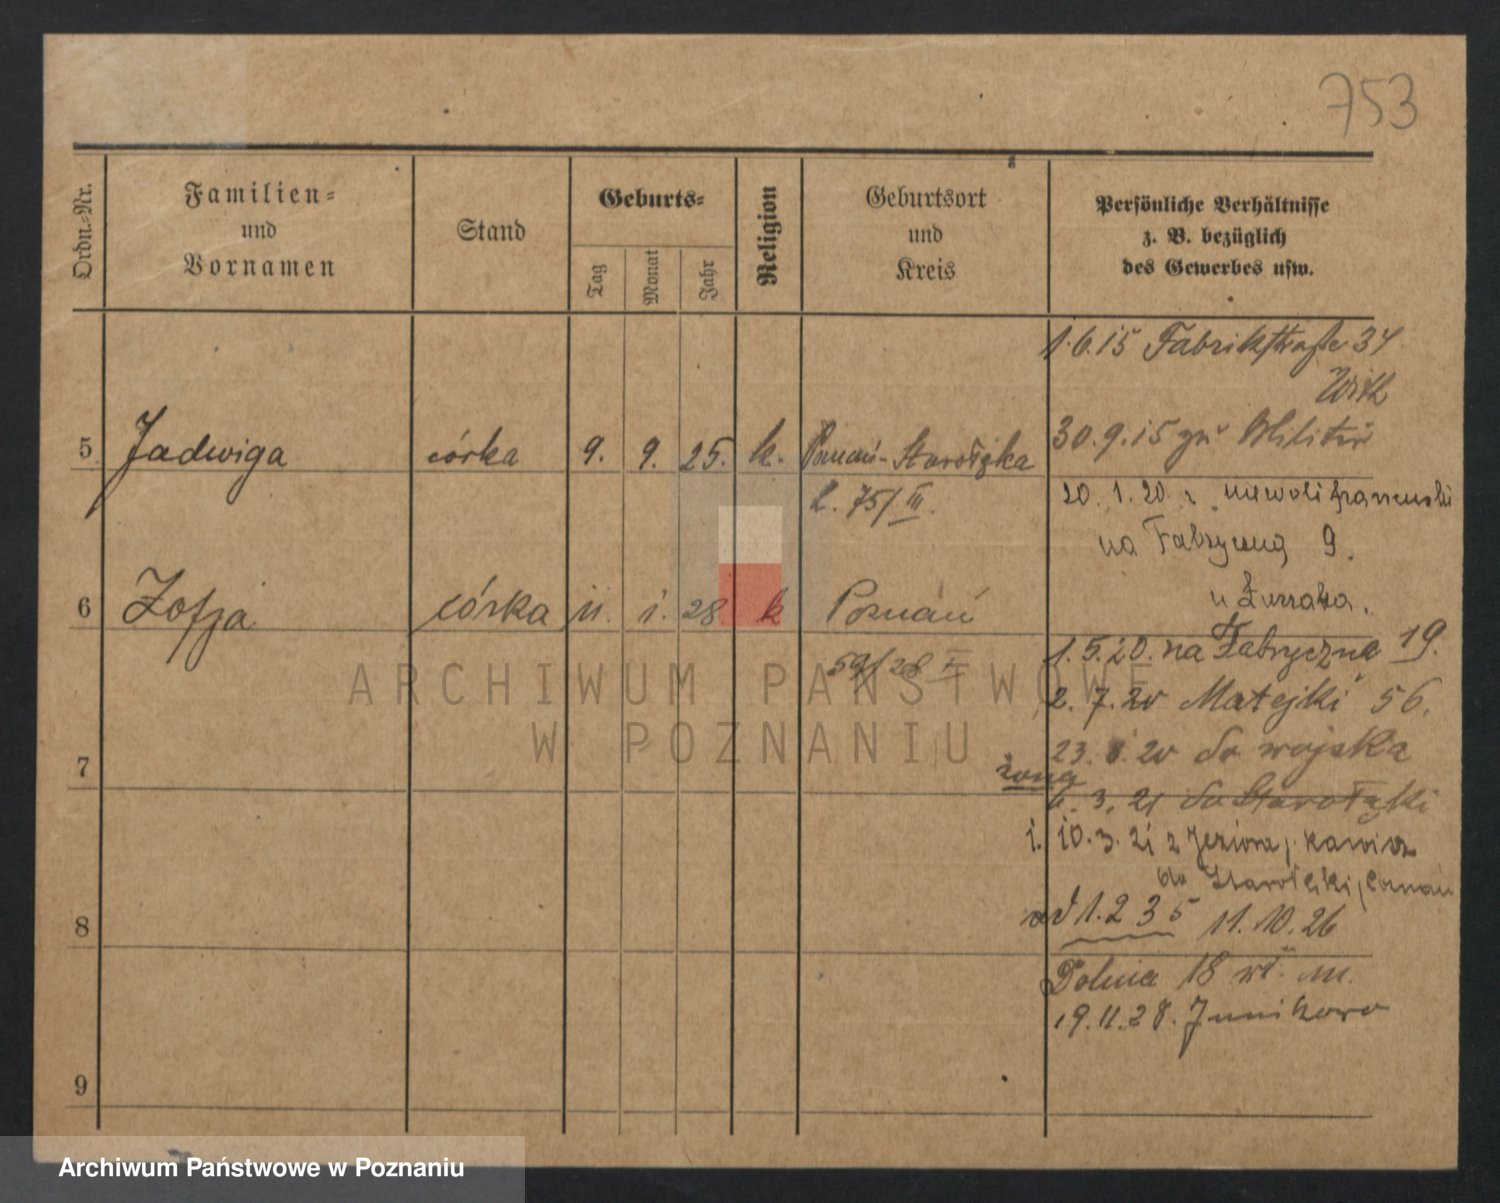 753
Ordn.-Nr.
Familien-
und
Vornamen
Stand
Geburts-
Tag
Monat
Jahr
Religion
Geburtsort
und
Kreis
Persönliche Verhältnisse
z. B. bezüglich
des Gewerbes usw.
1.6.15 Fabrikstraße 34
30.9.15 zum Militär
5 Jadwiga córka 9. 9. 25. k. Poznań-Starołęka
L. 75/III.
20.1.20 z niewoli francuski
na Fabryczną 9.
u Żuraw
6 Zofja córka 11. 1. 28 k Poznań
59/28 I
1.5.20. na Fabryczna 19.
2.7.20 Matejki 56.
23.8.20 do wojska
żona
7
6.3.21 do Starołęki
1. 10.3.21 z Jeziora,
do Starołęki, Poznań
8
od 1.2 35 11.10.26
Dolina 18 wł. m.
19.11.28. Junikowo
9
ARCHIWUM PAŃSTWOWE
W POZNANIU
Archiwum Państwowe w Poznaniu